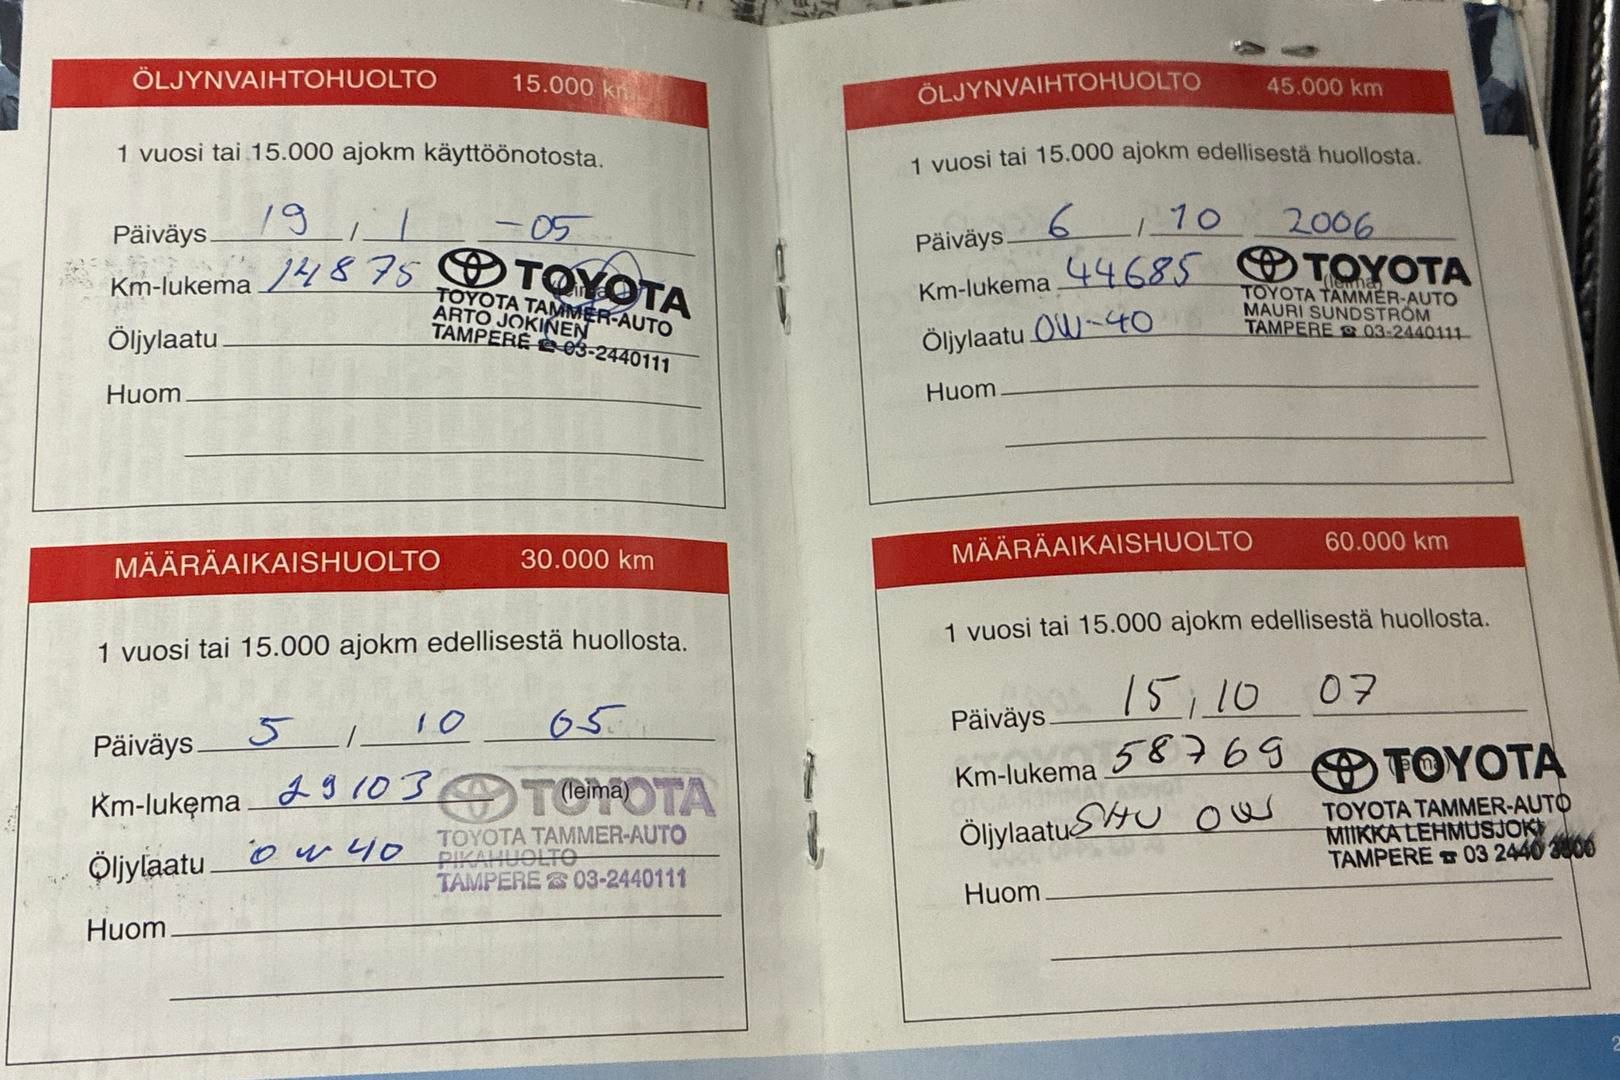 ÖLJYNVAIHTOHUOLTO 15.000 km
1 vuosi tai 15.000 ajokm käyttöönotosta.
Päiväys 19 / 1 -05
Km-lukema 14875
(leima)
TOYOTA
TOYOTA TAMMER-AUTO
ARTO JOKINEN
TAMPERE ☎ 03-2440111
Öljylaatu
Huom
MÄÄRÄAIKAISHUOLTO 30.000 km
1 vuosi tai 15.000 ajokm edellisestä huollosta.
Päiväys 5 / 10 05
Km-lukema 29103
(leima)
TOYOTA
TOYOTA TAMMER-AUTO
PIKAHUOLTO
TAMPERE ☎ 03-2440111
Öljylaatu 0W40
Huom
ÖLJYNVAIHTOHUOLTO 45.000 km
1 vuosi tai 15.000 ajokm edellisestä huollosta.
Päiväys 6 / 10 2006
Km-lukema 44685
(leima)
TOYOTA
TOYOTA TAMMER-AUTO
MAURI SUNDSTRÖM
TAMPERE ☎ 03-2440111
Öljylaatu 0W-40
Huom
MÄÄRÄAIKAISHUOLTO 60.000 km
1 vuosi tai 15.000 ajokm edellisestä huollosta.
Päiväys 15 / 10 07
Km-lukema 58769
(leima)
TOYOTA
TOYOTA TAMMER-AUTO
MIIKKA LEHMUSJOKI
TAMPERE ☎ 03 2440
Öljylaatu SHU 0W
Huom
2